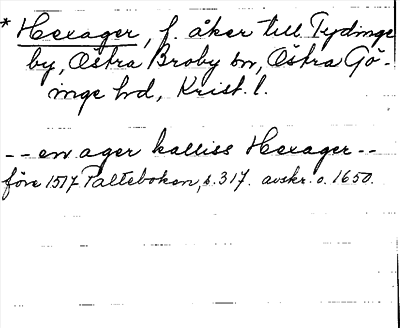 * Hexager, f. åker till Tydinge
by, Östra Broby sn, Östra Gö-
inge hd, Krist. l.
-- en ager kalliss Hexager --
före 1517 Paltebokon, s. 317. avskr. o. 1650.